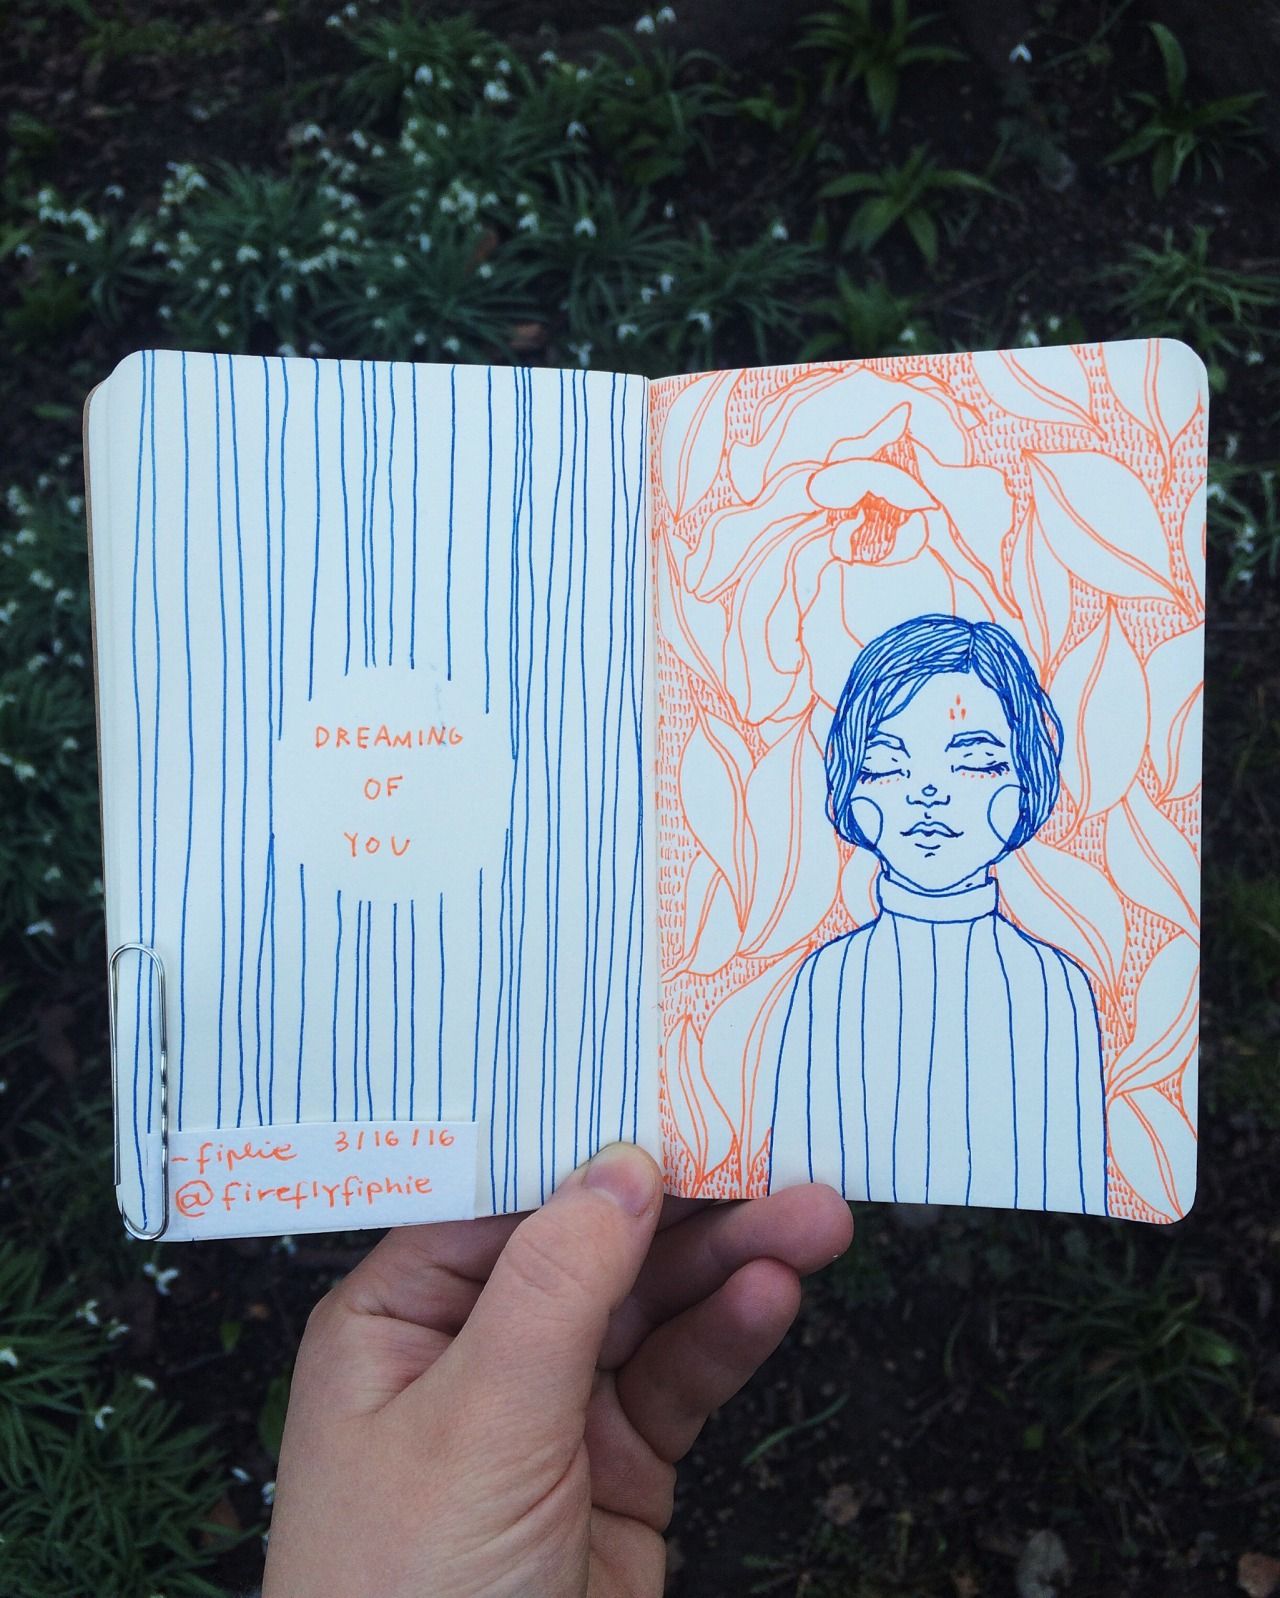 DREAMING
OF
YOU
~fiphie 3/16/16
@fireflyfiphie